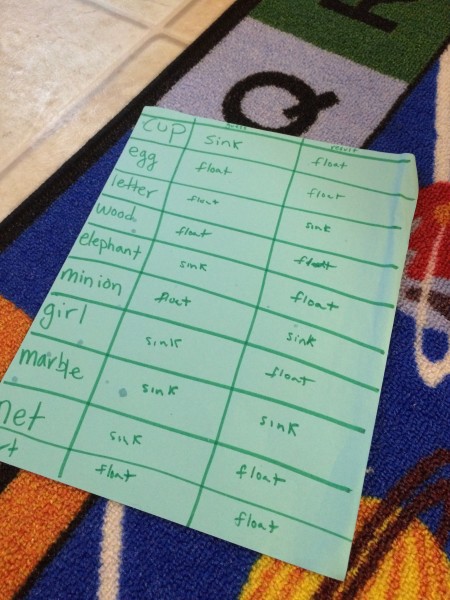 R
Q
cup sink float
egg float float
letter float sink
wood float float
elephant sink float
minion float sink
girl sink float
marble sink sink
net sink float
t float float